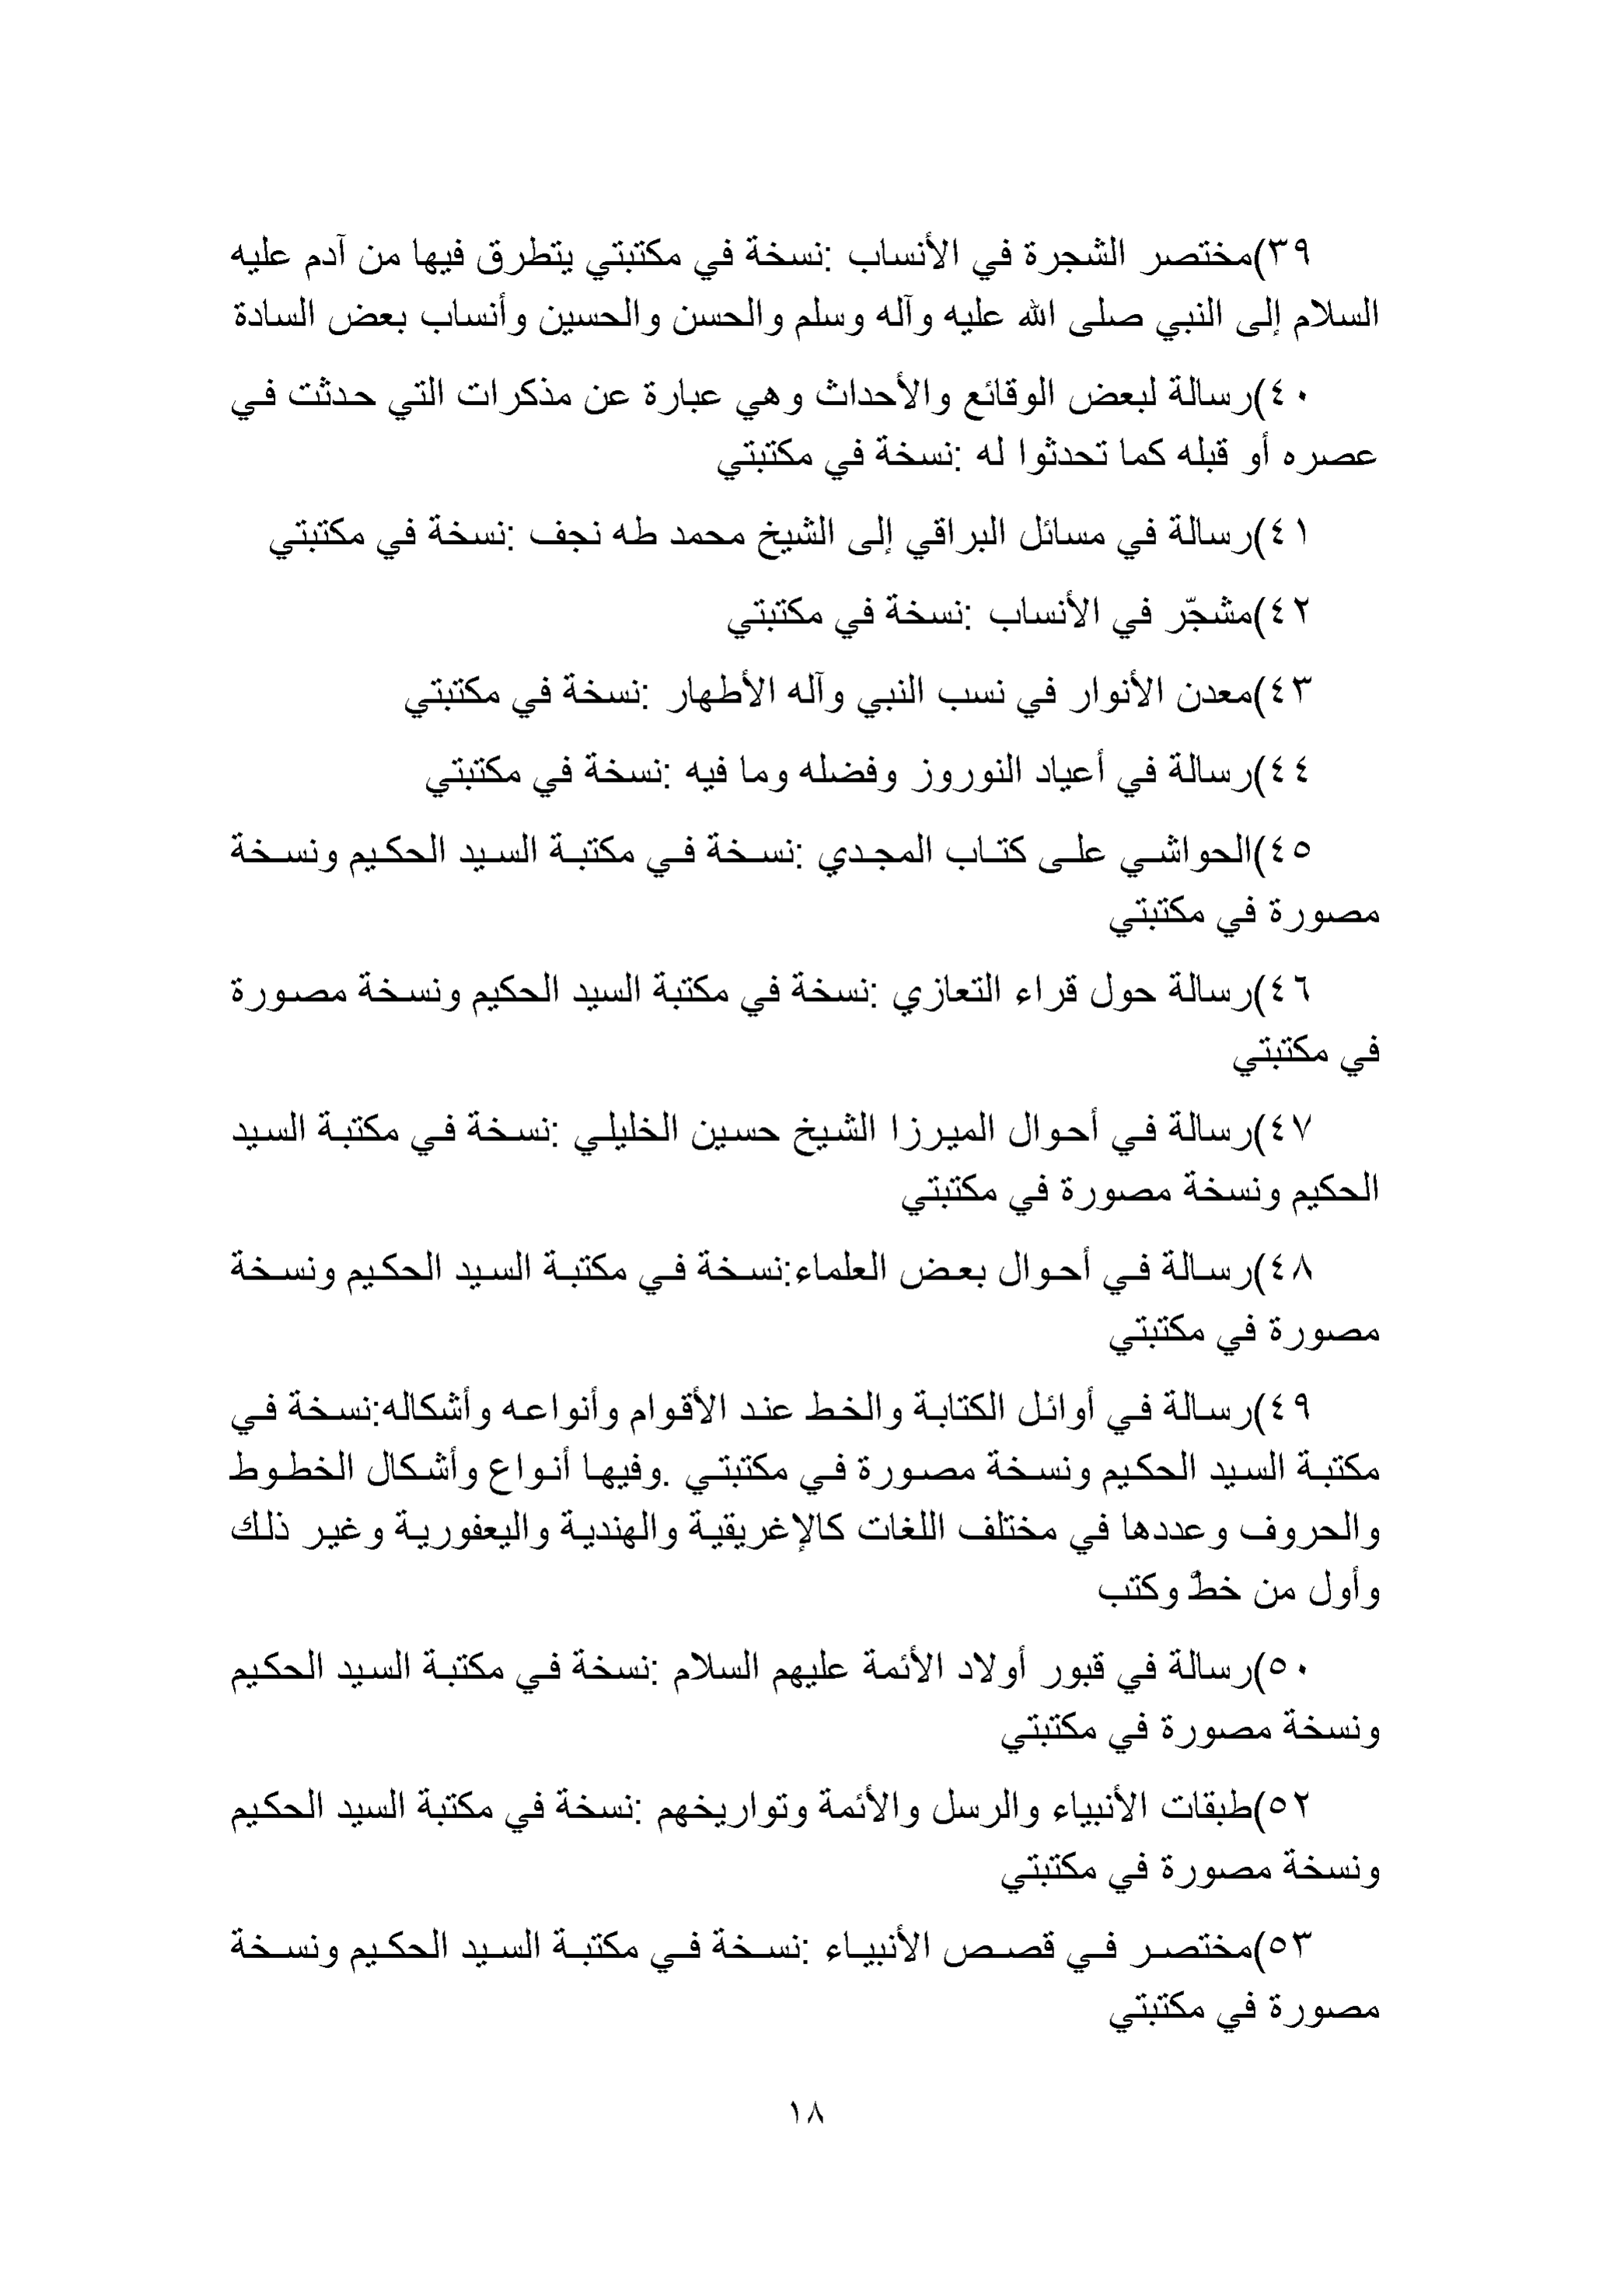 ٣٩)مختصر الشجرة في الأنساب :نسخة في مكتبتي يتطرق فيها من آدم عليه
السلام إلى النبي صلى الله عليه وآله وسلم والحسن والحسين وأنساب بعض السادة
٤٠)رسالة لبعض الوقائع والأحداث وهي عبارة عن مذكرات التي حدثت في
عصره أو قبله كما تحدثوا له :نسخة في مكتبتي
٤١)رسالة في مسائل البراقي إلى الشيخ محمد طه نجف :نسخة في مكتبتي
٤٢)مشجّر في الأنساب :نسخة في مكتبتي
٤٣)معدن الأنوار في نسب النبي وآله الأطهار :نسخة في مكتبتي
٤٤)رسالة في أعياد النوروز وفضله وما فيه :نسخة في مكتبتي
٤٥)الحواشي على كتاب المجدي :نسخة في مكتبة السيد الحكيم ونسخة
مصورة في مكتبتي
٤٦)رسالة حول قراء التعازي :نسخة في مكتبة السيد الحكيم ونسخة مصورة
في مكتبتي
٤٧)رسالة في أحوال الميرزا الشيخ حسين الخليلي :نسخة في مكتبة السيد
الحكيم ونسخة مصورة في مكتبتي
٤٨)رسالة في أحوال بعض العلماء:نسخة في مكتبة السيد الحكيم ونسخة
مصورة في مكتبتي
٤٩)رسالة في أوائل الكتابة والخط عند الأقوام وأنواعه وأشكاله:نسخة في
مكتبة السيد الحكيم ونسخة مصورة في مكتبتي .وفيها أنواع وأشكال الخطوط
والحروف وعددها في مختلف اللغات كالإغريقية والهندية واليعفورية وغير ذلك
وأول من خطّ وكتب
٥٠)رسالة في قبور أولاد الأئمة عليهم السلام :نسخة في مكتبة السيد الحكيم
ونسخة مصورة في مكتبتي
٥٢)طبقات الأنبياء والرسل والأئمة وتواريخهم :نسخة في مكتبة السيد الحكيم
ونسخة مصورة في مكتبتي
٥٣)مختصر في قصص الأنبياء :نسخة في مكتبة السيد الحكيم ونسخة
مصورة في مكتبتي
١٨